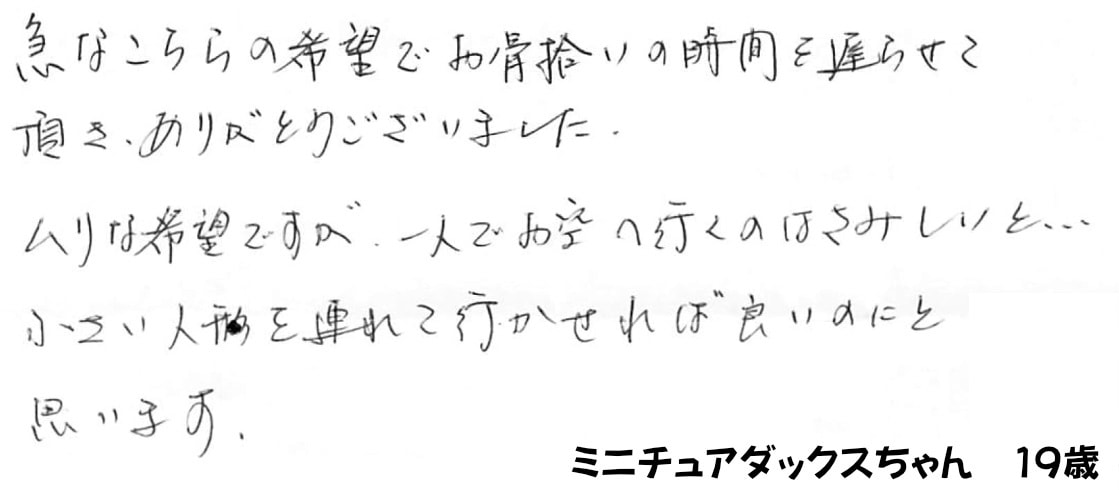 急なこちらの希望でお骨拾いの時間を遅らせて
頂き、ありがとうございました.
ムリな希望ですが、一人でお空へ行くのはさみしいと…
小さい人形を連れて行かせれば良いのにと
思います.
ミニチュアダックスちゃん 19歳